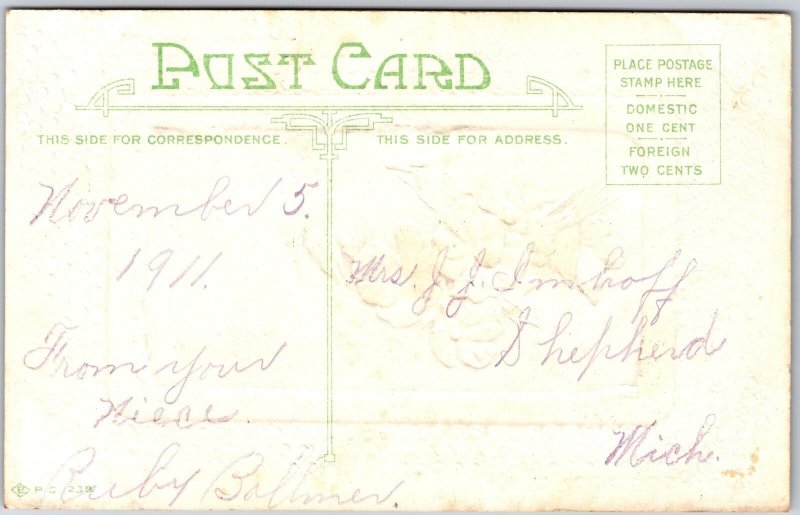 POST CARD
PLACE POSTAGE
STAMP HERE
DOMESTIC
ONE CENT
FOREIGN
TWO CENTS
THIS SIDE FOR CORRESPONDENCE.
THIS SIDE FOR ADDRESS.
November 5.
1911.
From your
Niece.
Ruby Bollmer.
Mrs. J. J. Imhoff
Shepherd
Mich.
P.C. 239